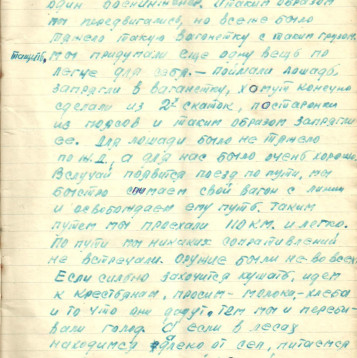 один военинженер. Таким образом
мы передвигались, но все же было
тяжело такую вагонетку с таким грузом
тащить, мы придумали еще одну вещь по
легче для себя. - Поймали лошадь,
запрягли в вагонетку, хомут конечно
сделали из 2х скаток, постаронки
из поясов и таким образом запрягли
ее. Для лошади было не тяжело
по ж.д., а для нас было очень хорошо.
Вслучаи подвится поезд по пути, мы
быстро снимаем свой вагон с линии
и освобождаем ему путь. Таким
путем мы проехали 110 км. и легко.
По пути мы никаких сопративлений
не встречали. Оружие были не во всех.
Если сильно захочится кушать, идем
к крестьянам, просим - молока, - хлеба
и то что они дадут. Тем мы и переби-
вали голод. А если в лесах
находимся далеко от сел, питаемся